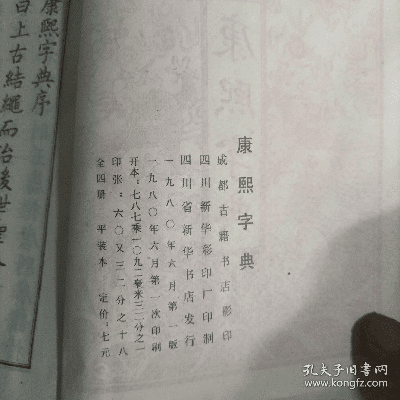 康熙字典
成都古籍书店影印
四川新华彩印厂印制
四川省新华书店发行
一九八〇年六月第一版
一九八〇年六月第一次印制
开本:七八七乘一〇九二毫米三二分之一
印张:六〇又三二分之十八
全四册 平装本 定价:七元
康熙字典序
自上古結繩而治後世聖人
孔夫子旧书网
www.kongfz.com